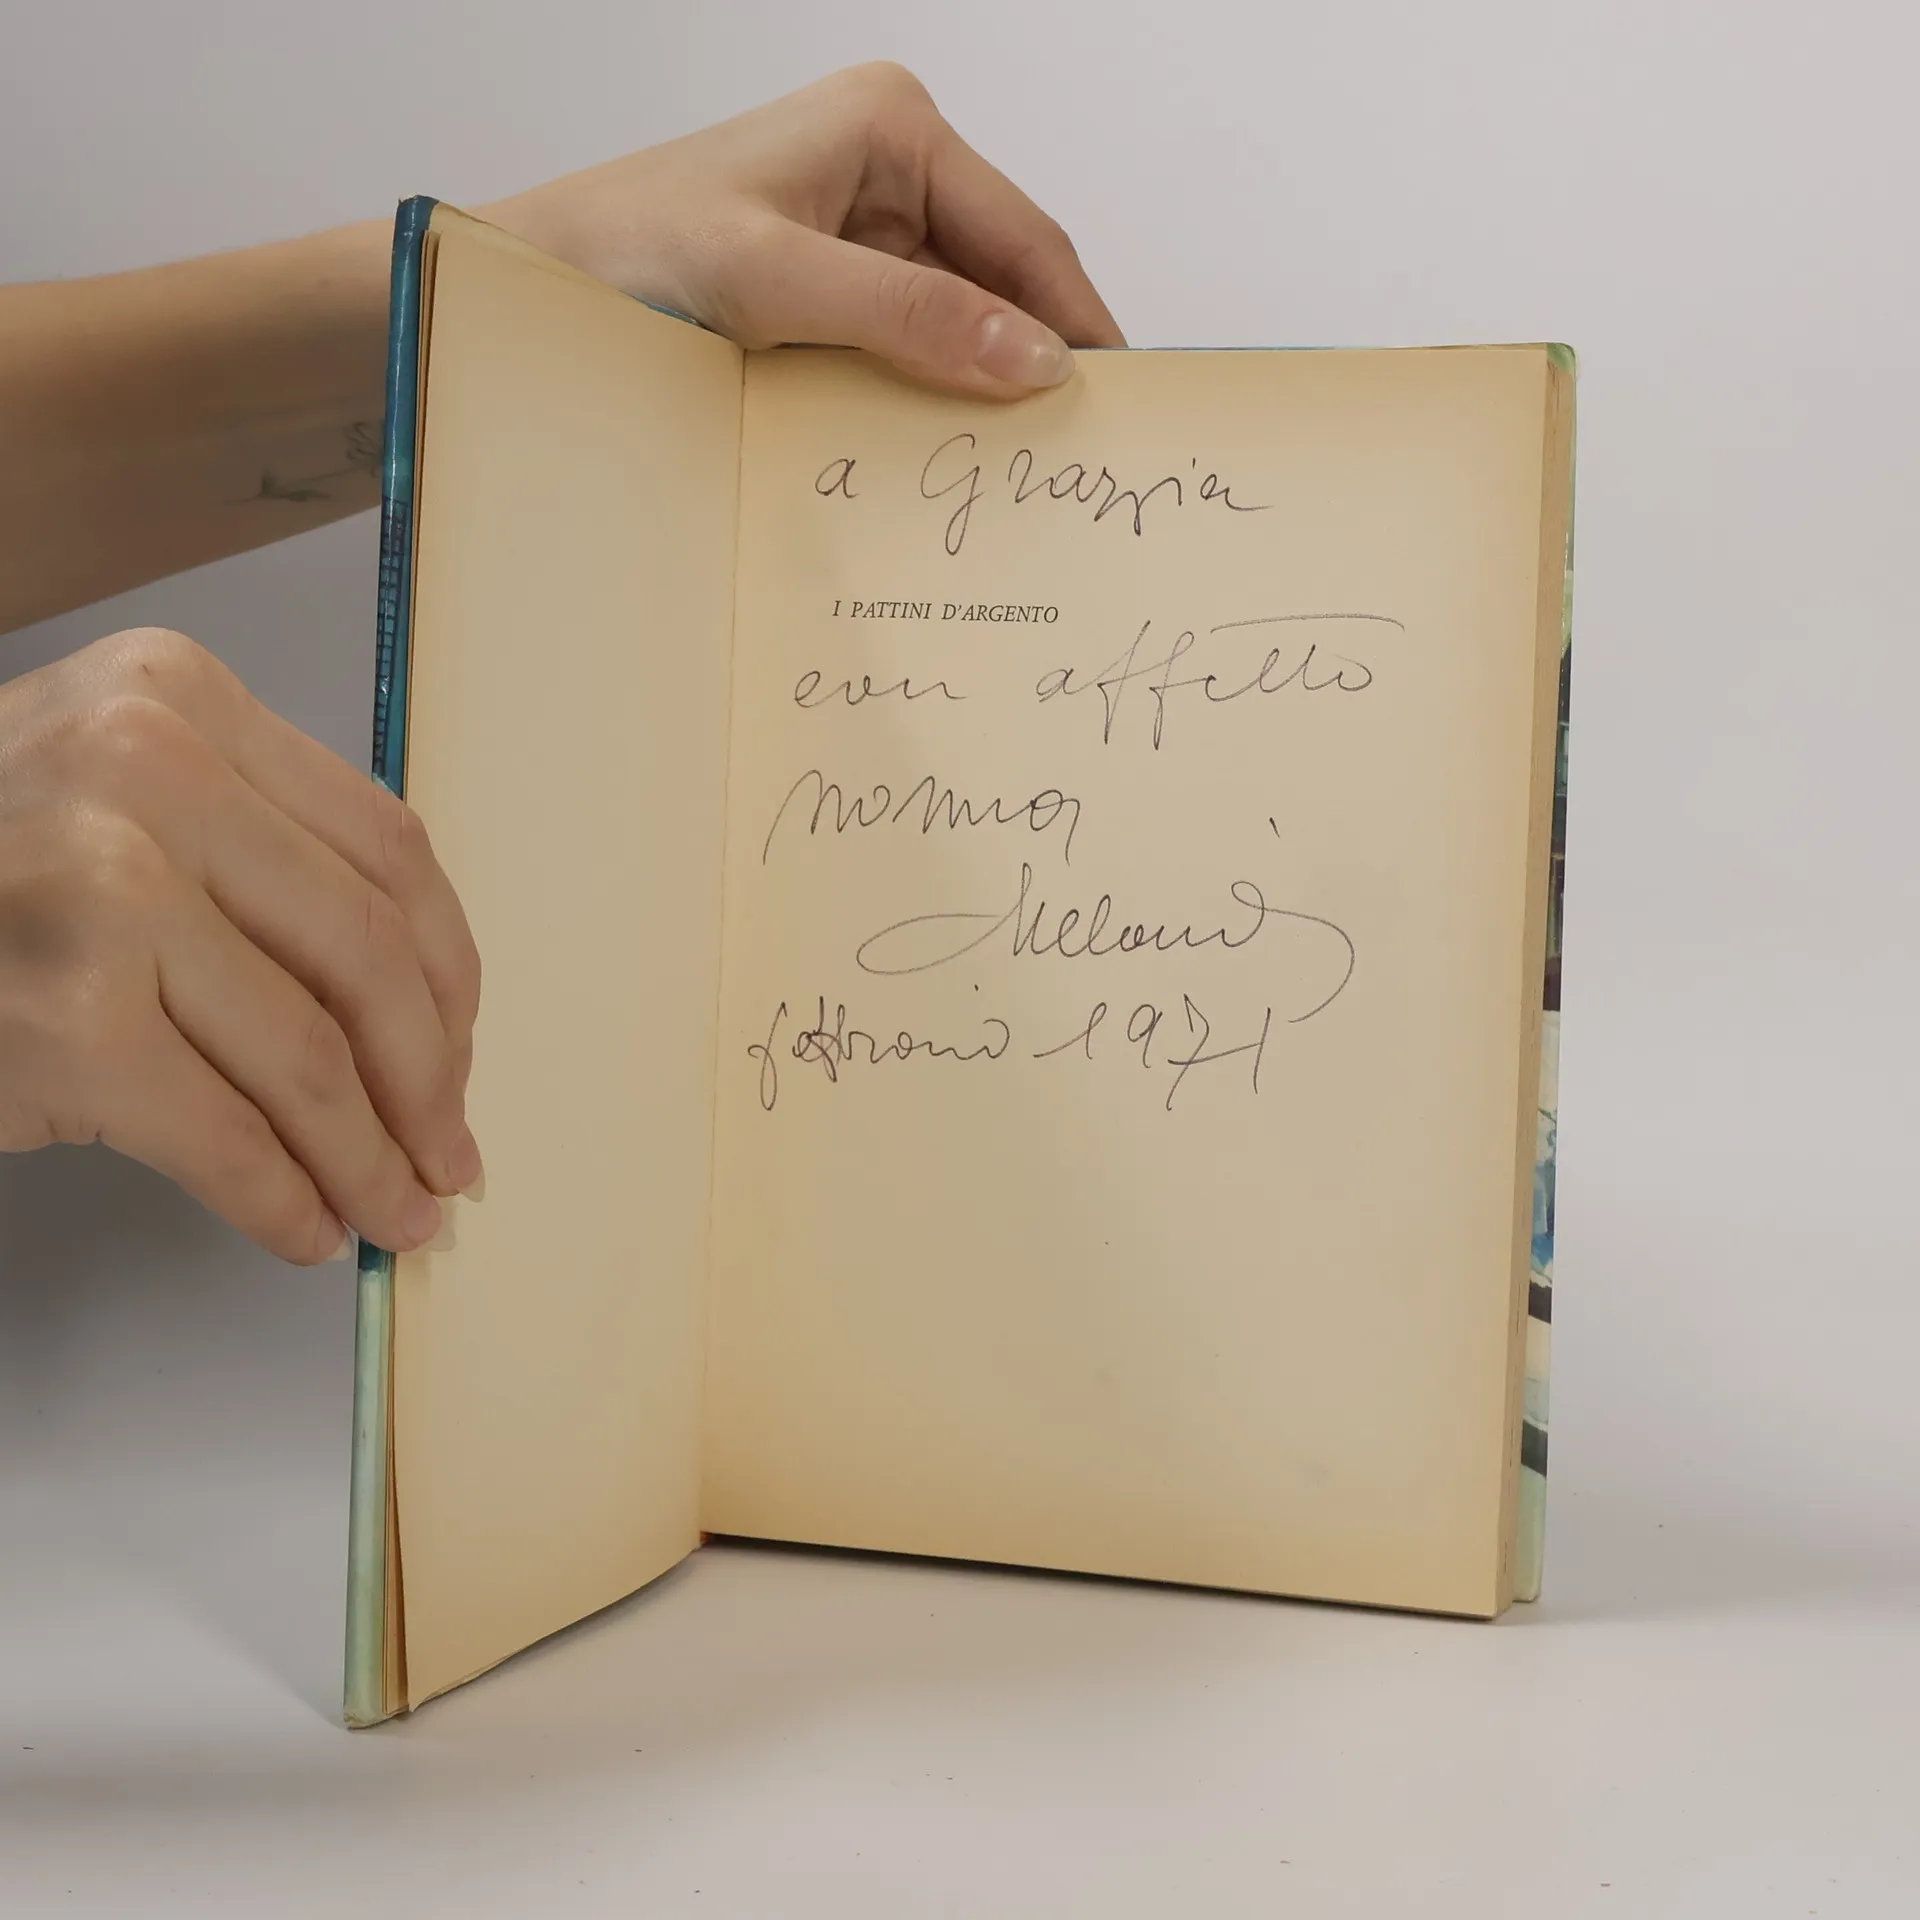 a Grazia
I PATTINI D'ARGENTO
con affetto
nonna
febbraio 1971